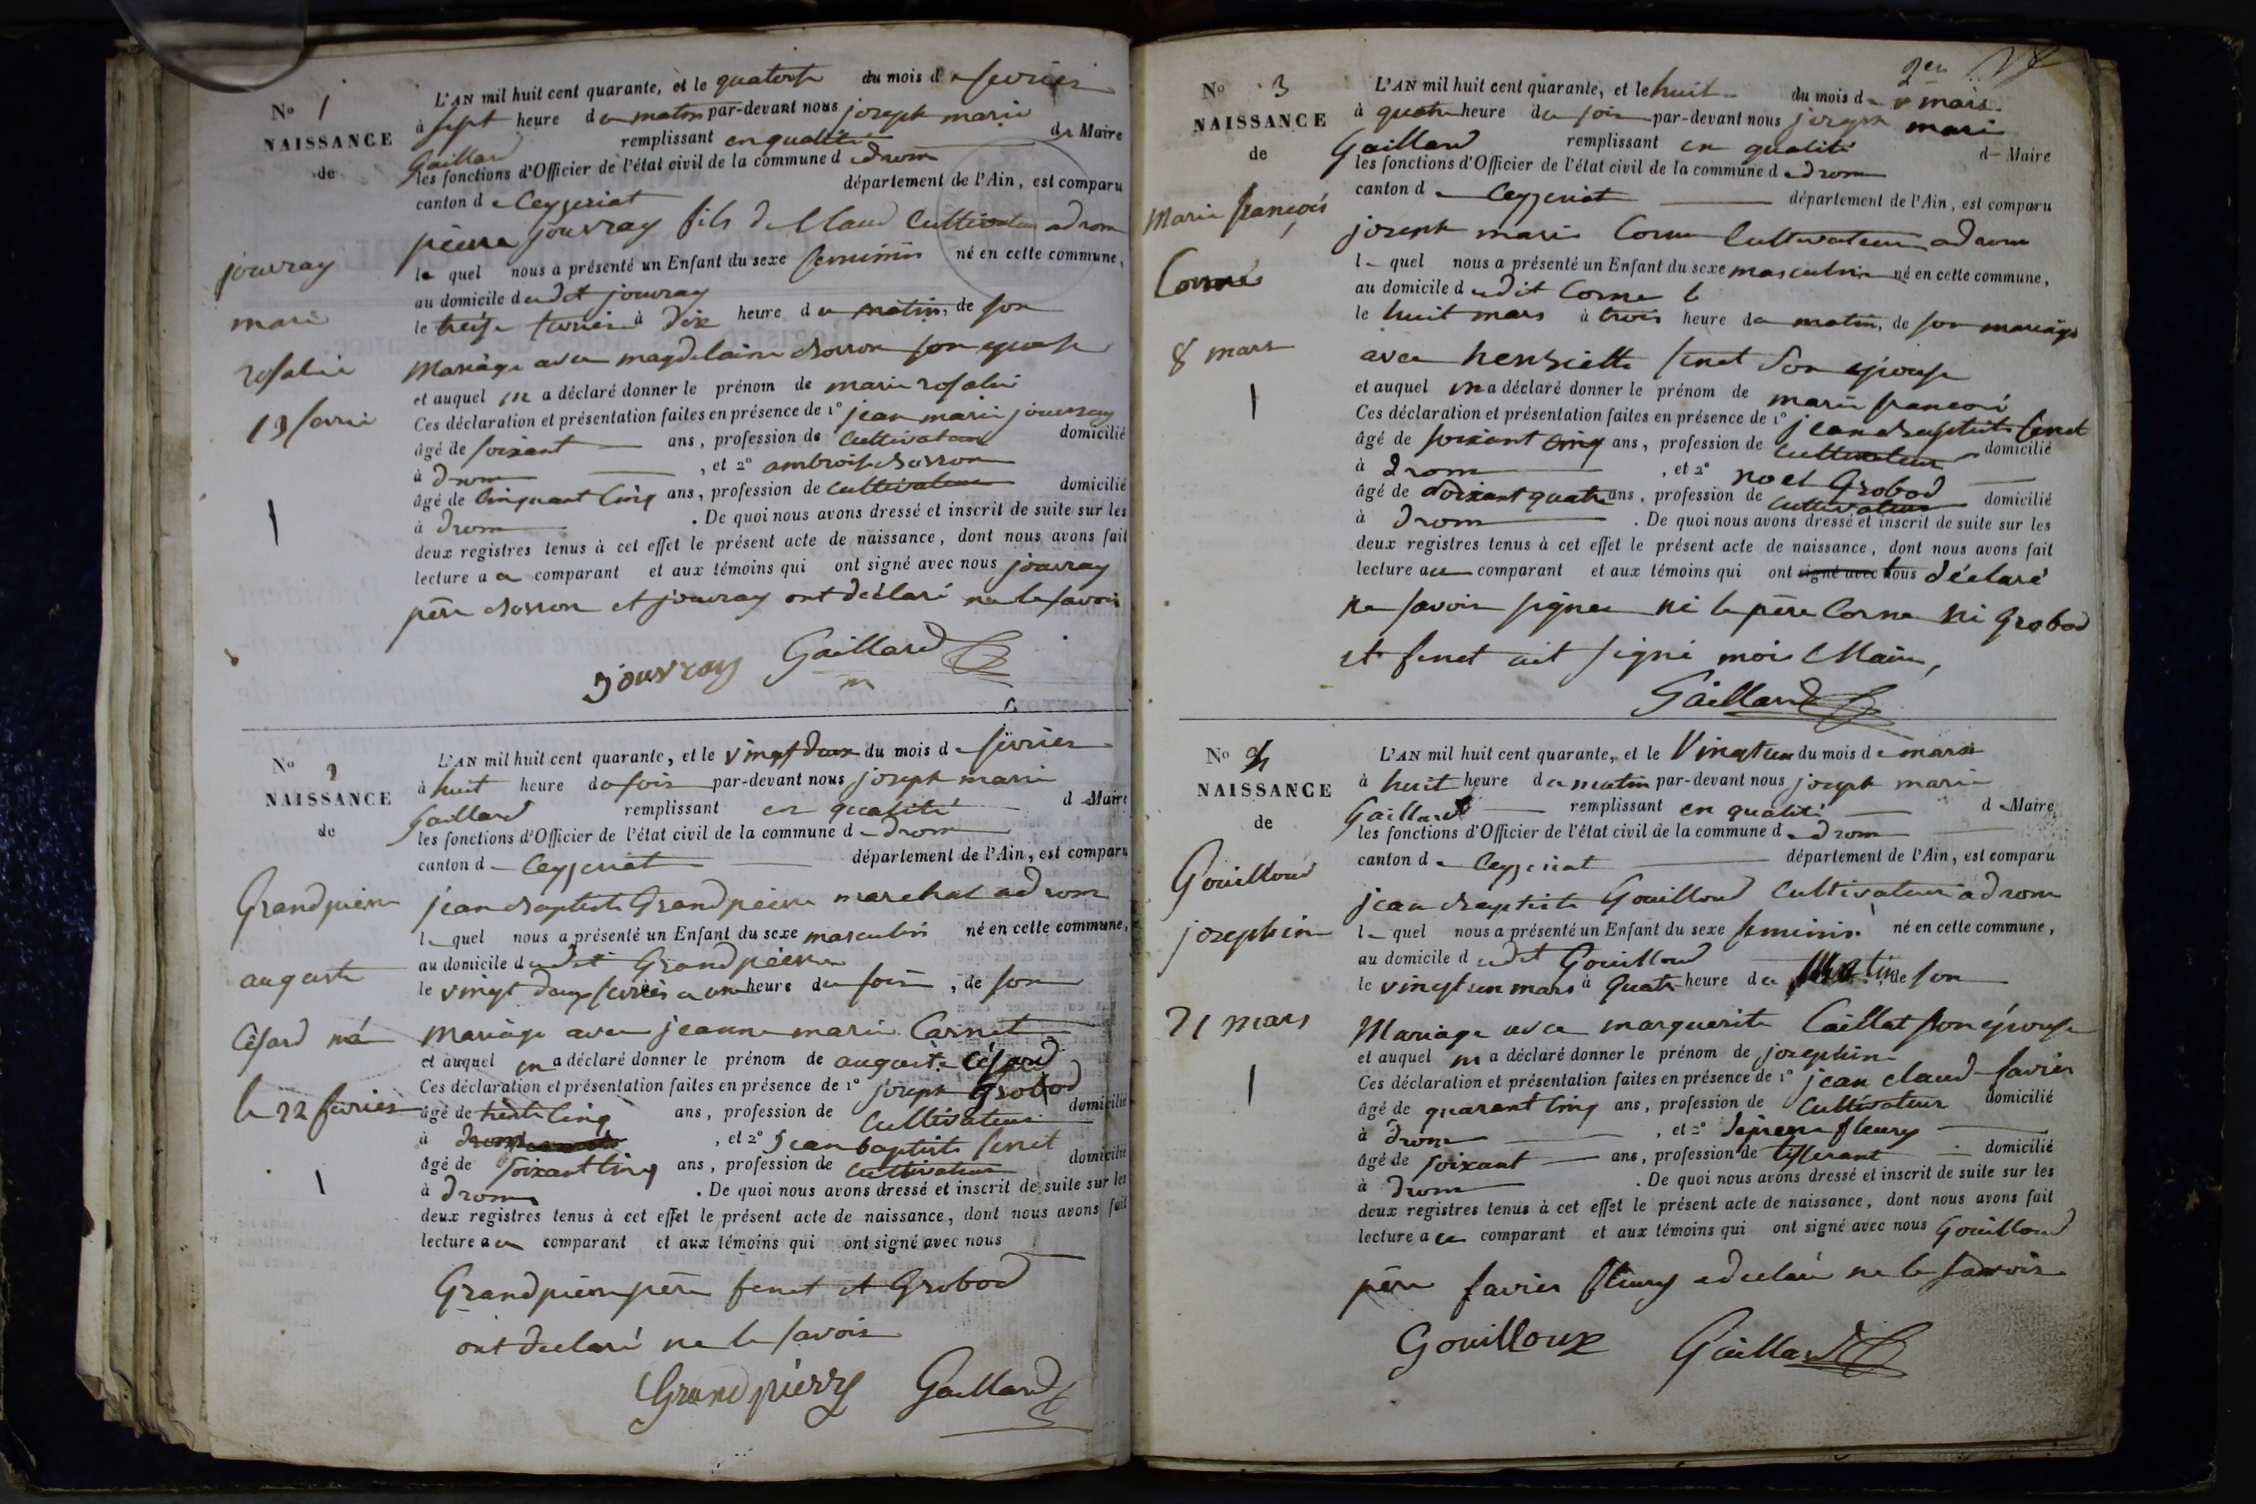 No 1
NAISSANCE
de
jouvray
mari
rosalie
13 favrie
L'AN mil huit cent quarante, et le quatorse du mois d e fevrier
à sept heure d u matin par-devant nous joseph marie
Gaillard remplissant en qualité de Maire
les fonctions d'Officier de l'état civil de la commune d e drom
canton d e Ceyzeriat département de l'Ain, est comparu
pierre jouvray fils de Claud Cultivateur a drom
le quel nous a présenté un Enfant du sexe feminin né en cette commune,
au domicile d udit jouvray
le treise fevrier à dix heure d u matin, de son
Mariage avec magdelaine Bosson son epouse
et auquel on a déclaré donner le prénom de marie rosalie
Ces déclaration et présentation faites en présence de 1° jean marie jouvray
âgé de soixant ans, profession de Cultivateur domicilié
à drom , et 2° ambroise Bosson
âgé de Cinquant Cinq ans, profession de Cultivateur domicilié
à drom . De quoi nous avons dressé et inscrit de suite sur les
deux registres tenus à cet effet le présent acte de naissance, dont nous avons fait
lecture a u comparant et aux témoins qui ont signé avec nous jouvray
père Bosson et jouvray ont déclaré ne le savoir
jouvray Gaillard
m
No 2
NAISSANCE
de
Grandpierre
auguste
Césard né
le 22 fevrier
L'AN mil huit cent quarante, et le vingt deux du mois d e fevrier
à huit heure du soir par-devant nous joseph marie
Gaillard remplissant en qualité d e Maire
les fonctions d'Officier de l'état civil de la commune d e drom
canton d e Ceyzeriat département de l'Ain, est comparu
jean Baptiste Grandpierre marechal a drom
le quel nous a présenté un Enfant du sexe masculin né en cette commune,
au domicile d udit Grandpierre
le vingt deux fevrier a une heure du soir, de son
Mariage avec jeanne marie Carnet
et auquel on a déclaré donner le prénom de auguste Césard
Ces déclaration et présentation faites en présence de 1° joseph Grobod
âgé de trente Cinq ans, profession de Cultivateur domicilié
à drom , et 2° Jean baptiste fenet
âgé de soixant Cinq ans, profession de Cultivateur domicilié
à drom . De quoi nous avons dressé et inscrit de suite sur les
deux registres tenus à cet effet le présent acte de naissance, dont nous avons fait
lecture a u comparant et aux témoins qui ont signé avec nous
Grandpierre père fenet et Grobod
ont declaré ne le savoir
Grandpierre Gaillard
No 3
NAISSANCE
de
Marie françois
Corné
8 mars
L'AN mil huit cent quarante, et le huit du mois d e mars
à quatre heure du soir par-devant nous joseph mari
Gaillard remplissant en qualité d e Maire
les fonctions d'Officier de l'état civil de la commune d e drom
canton d e Ceyzeriat département de l'Ain, est comparu
joseph marie Corne Cultivateur a drom
le quel nous a présenté un Enfant du sexe masculin né en cette commune,
au domicile d udit Corne
le huit mars à trois heure du matin, de son mariage
avec henriette fenet son epouse
et auquel on a déclaré donner le prénom de marie françois
Ces déclaration et présentation faites en présence de 1° jean Baptiste fenet
âgé de soixant Cinq ans, profession de Cultivateur domicilié
à drom , et 2° noel Grobod
âgé de soixant quatre ans, profession de Cultivateur domicilié
à drom . De quoi nous avons dressé et inscrit de suite sur les
deux registres tenus à cet effet le présent acte de naissance, dont nous avons fait
lecture au comparant et aux témoins qui ont signé avec tous déclaré
ne savoir signer ni le père Corne ni Grobod
et fenet ait signé mois Maire,
Gaillard
No 4
NAISSANCE
de
Gouilloud
josephine
21 mars
L'AN mil huit cent quarante, et le Vingt un du mois d e mars
à huit heure d u matin par-devant nous joseph marie
Gaillard remplissant en qualité d e Maire
les fonctions d'Officier de l'état civil de la commune d e drom
canton d e Ceyzeriat département de l'Ain, est comparu
jean Baptiste Gouilloud Cultivateur a drom
le quel nous a présenté un Enfant du sexe feminin né en cette commune,
au domicile d udit Gouilloud
le vingt un mars à quatre heure du matin de son
Mariage avec marguerite Caillat son épouse
et auquel on a déclaré donner le prénom de josephine
Ces déclaration et présentation faites en présence de 1° jean claud favier
âgé de quarant Cinq ans, profession de Cultivateur domicilié
à drom , et 2° fleury
âgé de soixant ans, profession de tisserant domicilié
à drom . De quoi nous avons dressé et inscrit de suite sur les
deux registres tenus à cet effet le présent acte de naissance, dont nous avons fait
lecture a u comparant et aux témoins qui ont signé avec nous Gouilloud
père favier fleury a declaré ne le savoir
Gouilloux Gaillard